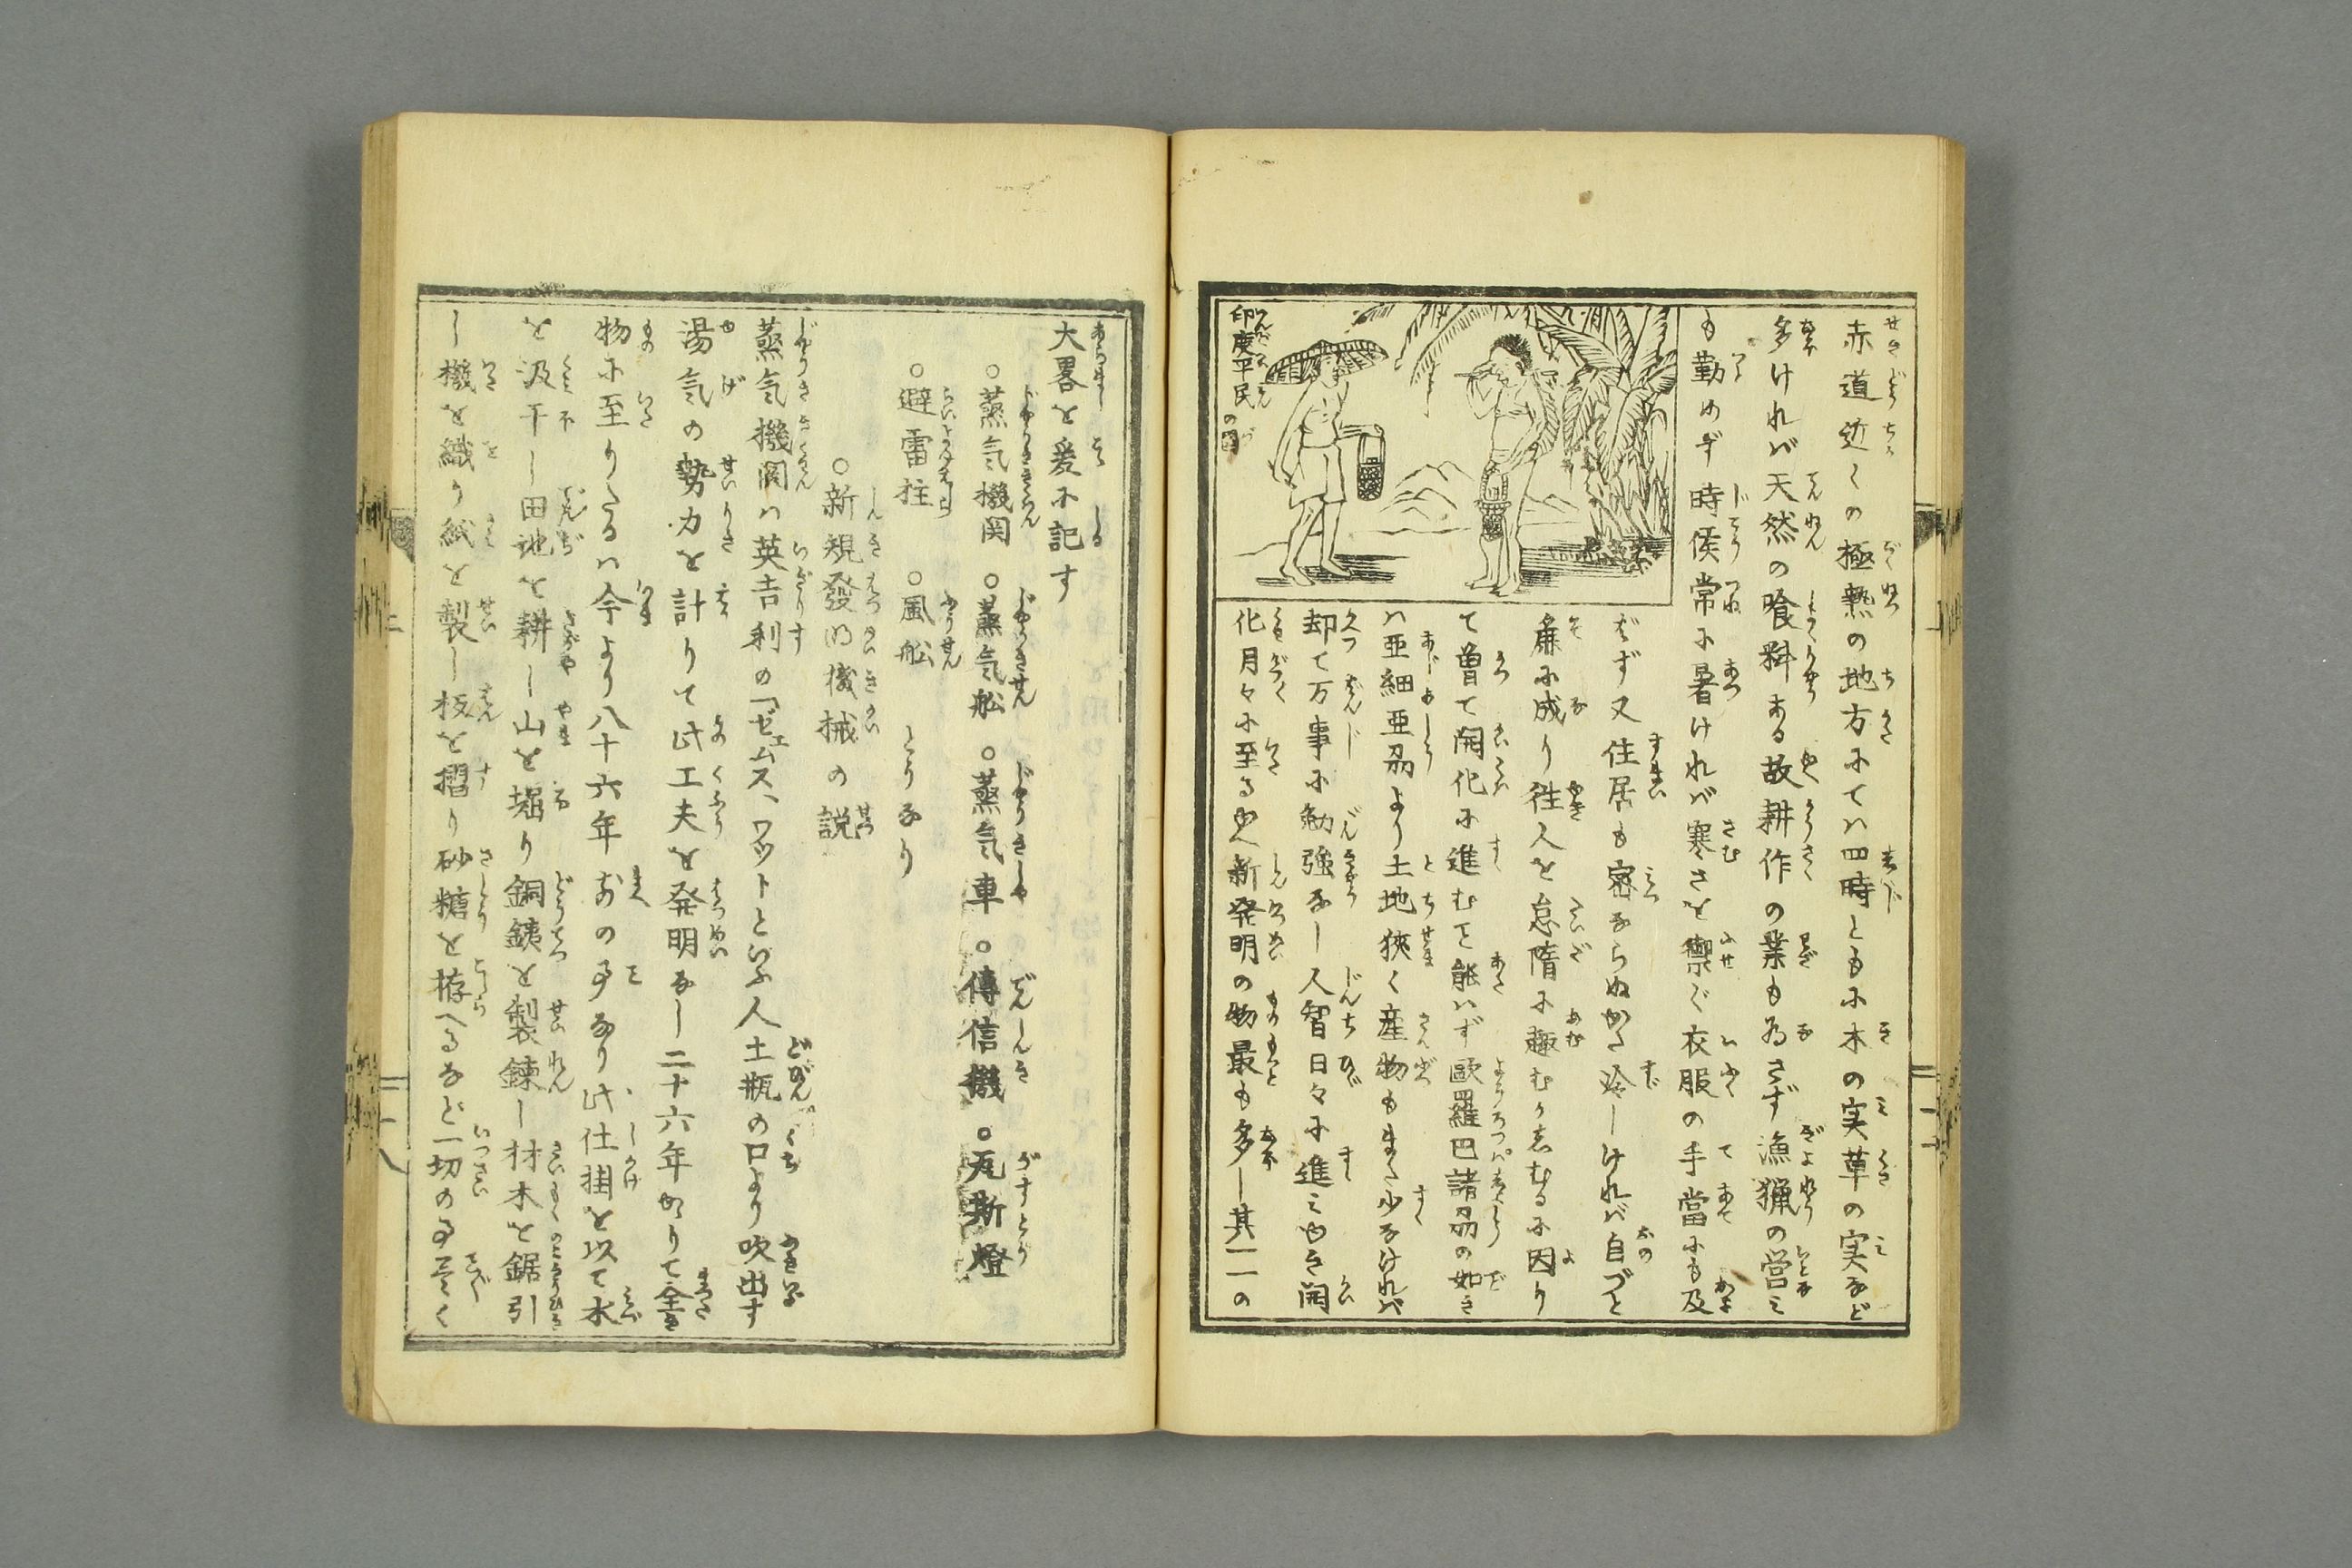 赤道近くの極熱の地方にてハ四時ともに木の実草の実など
多けれバ天然の喰料ある故耕作の業も為さず漁猟の営ミ
も勤めず時候常に暑けれバ寒さを禦ぐ衣服の手當にも及
ばず又住居も密ならぬかた冷しけれバ自づと
麁に成り往人を怠隋に趣むかしむるに因り
て曽て開化に進むこと能ハず歐羅巴諸刕の如き
ハ亜細亜刕より土地狹く産物もまた少なけれバ
却て万事に勉強なし人智日々に進ミゆき開
化月々に至る由へ新発明の物最も多し其一二の
印度平民の圖
大畧を爰に記す
○蒸気機関 ○蒸気舩 ○蒸気車 ○傳信機 ○瓦斯燈
○避雷柱 ○風舩 とうなり
○新規發明機械の説
蒸気機関ハ英吉利の「ゼエムス、ワットといふ人土瓶の口より吹出す
湯気の勢力を計りて此工夫を発明なし二十六年かゝりて全き
物に至りたるハ今より八十六年前の事なり此仕掛を以て水
を汲干し田地を耕し山を堀り銅銕を製錬し材木を鋸引
し機を織り紙を製し板を摺り砂糖を拵へるなど一切の事尽く